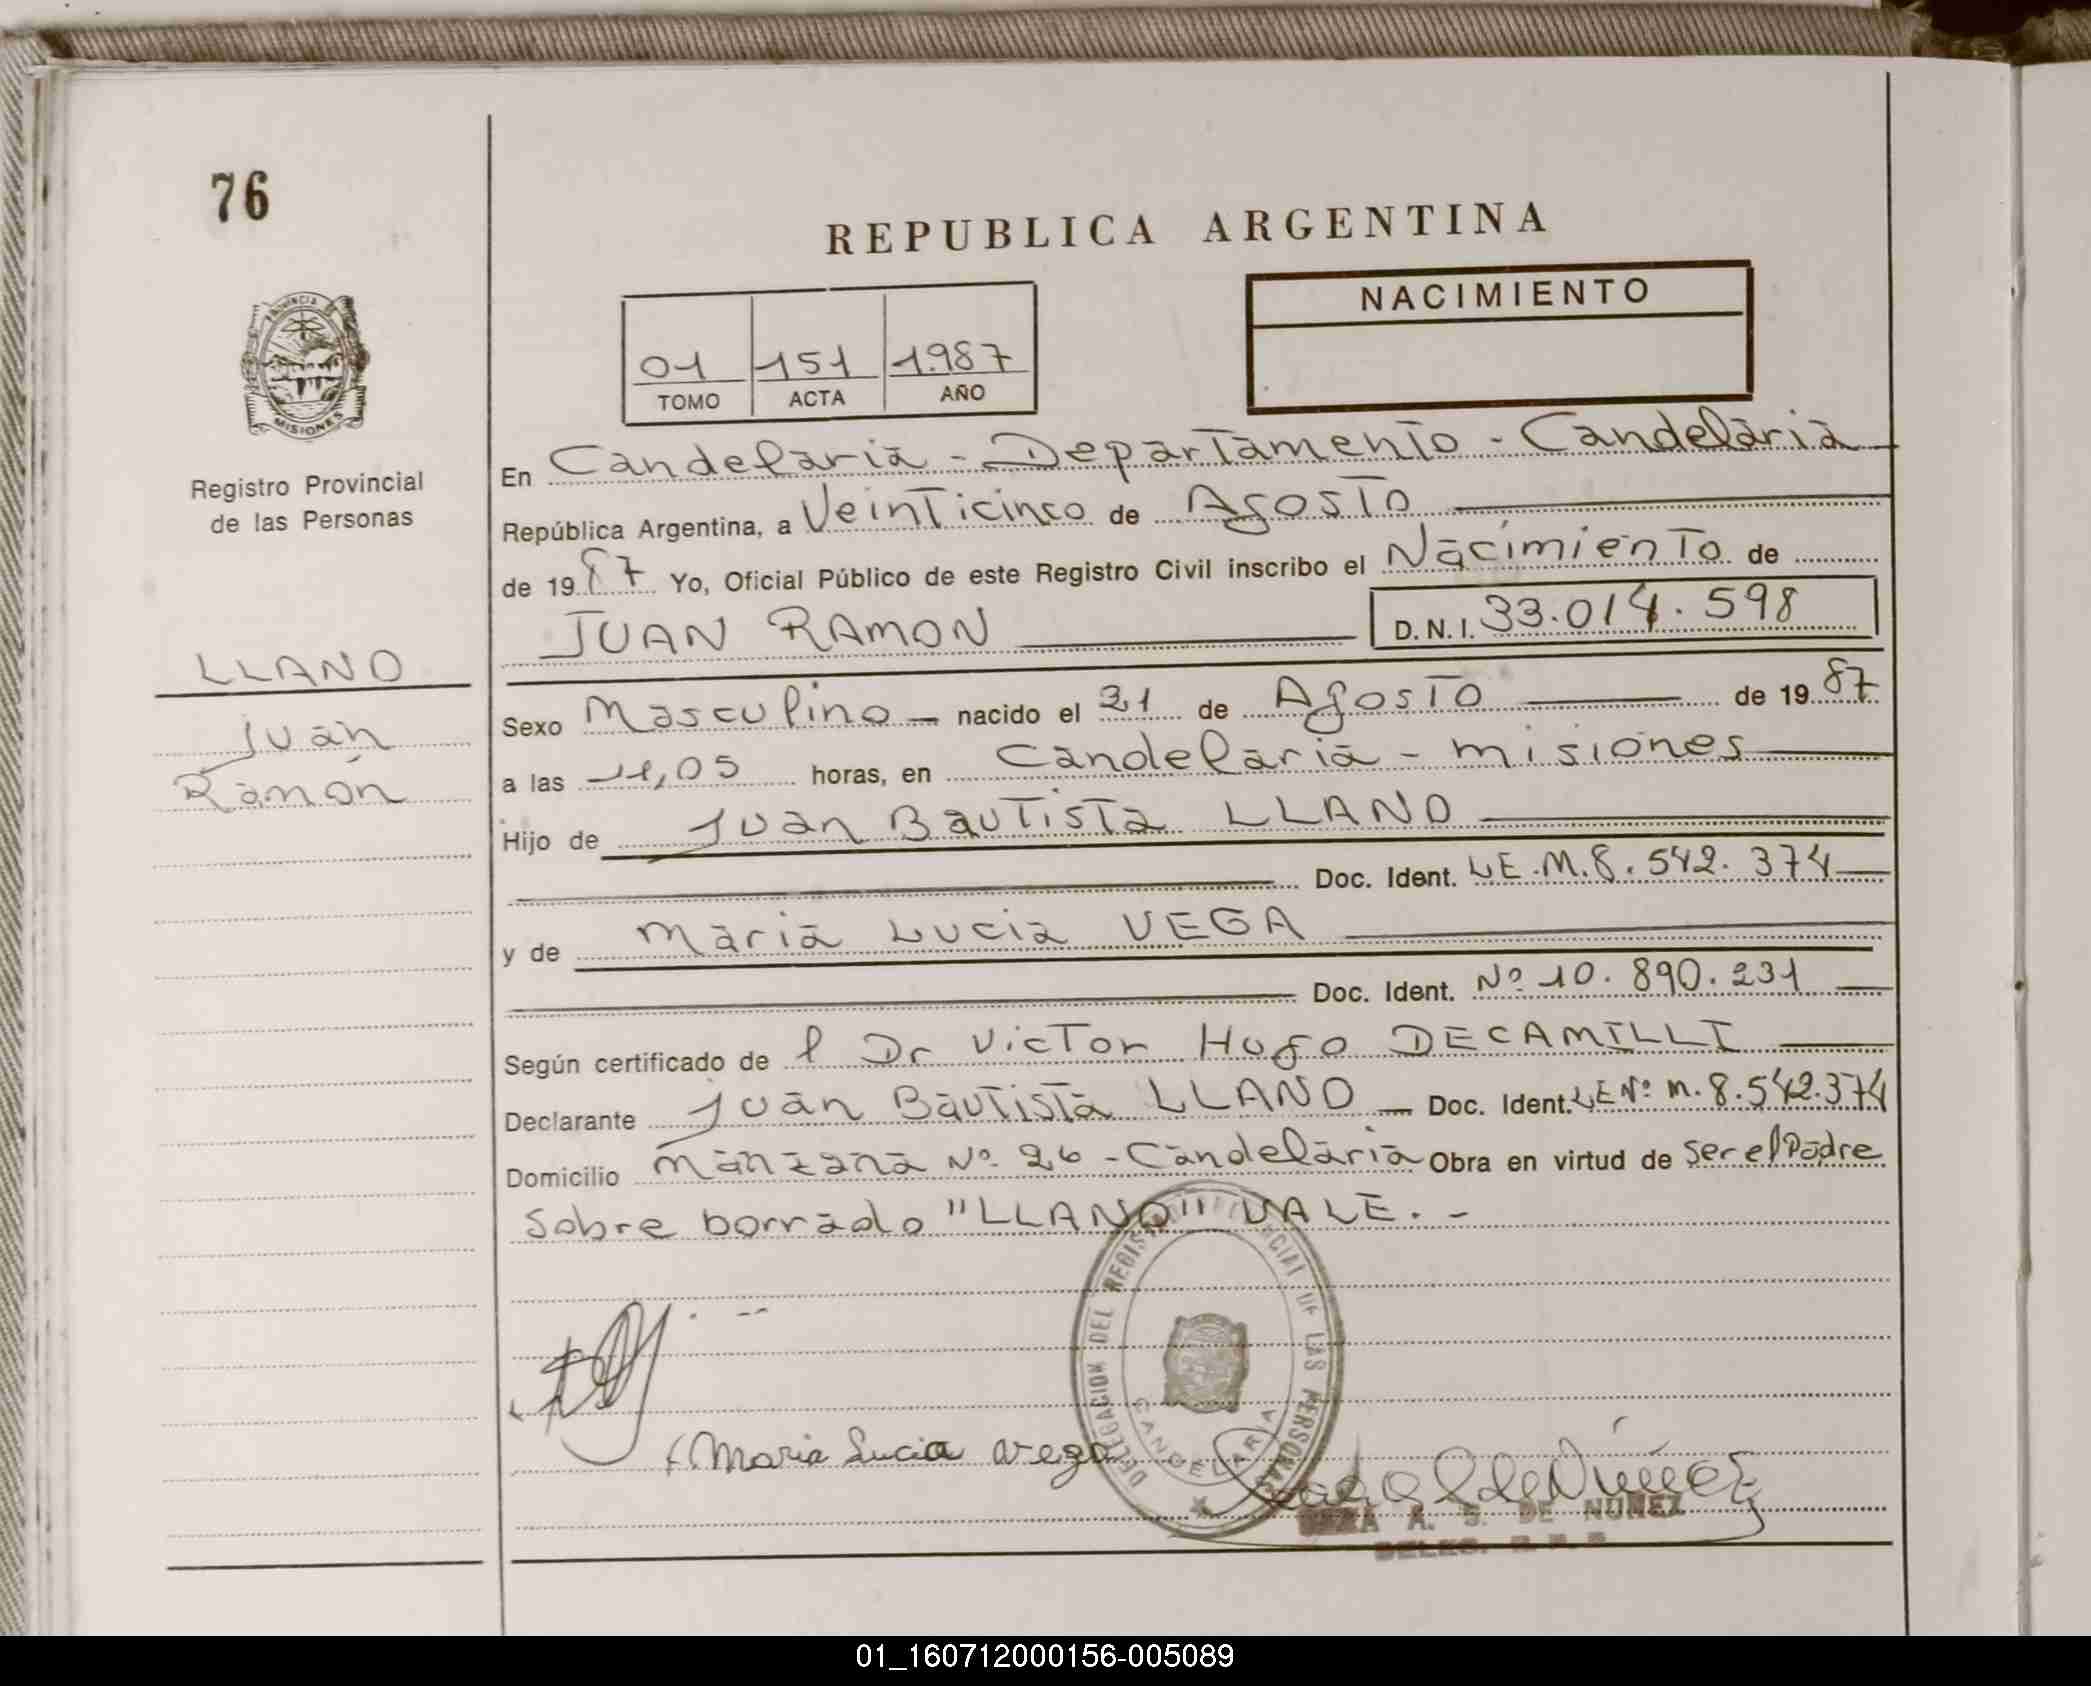 76
REPUBLICA ARGENTINA
PROVINCIA
MISIONES
Registro Provincial
de las Personas
01 151 1.987
TOMO ACTA AÑO
NACIMIENTO
En Candelaria - Departamento - Candelaria
República Argentina, a Veinticinco de Agosto
de 1987 Yo, Oficial Público de este Registro Civil inscribo el Nacimiento de
JUAN RAMON D.N.I. 33.014.598
LLANO
Juan
Ramón
Sexo Masculino nacido el 21 de Agosto de 1987
a las 11,05 horas, en Candelaria - Misiones
Hijo de Juan Bautista LLANO
Doc. Ident. LE.M.8.542.374
y de Maria Lucia VEGA
Doc. Ident. Nº 10.890.231
Según certificado de l Dr Victor Hugo DECAMILLI
Declarante Juan Bautista LLANO Doc. Ident. LE Nº M.8.542.374
Domicilio Manzana Nº 26 - Candelaria Obra en virtud de Ser el Padre
Sobre borrado "LLANO" VALE. -
DELEGACION DEL REGISTRO PROVINCIAL DE LAS PERSONAS
CANDELARIA
Maria Lucia Vega
A. S. DE NUÑEZ
DELEG.
01_160712000156-005089